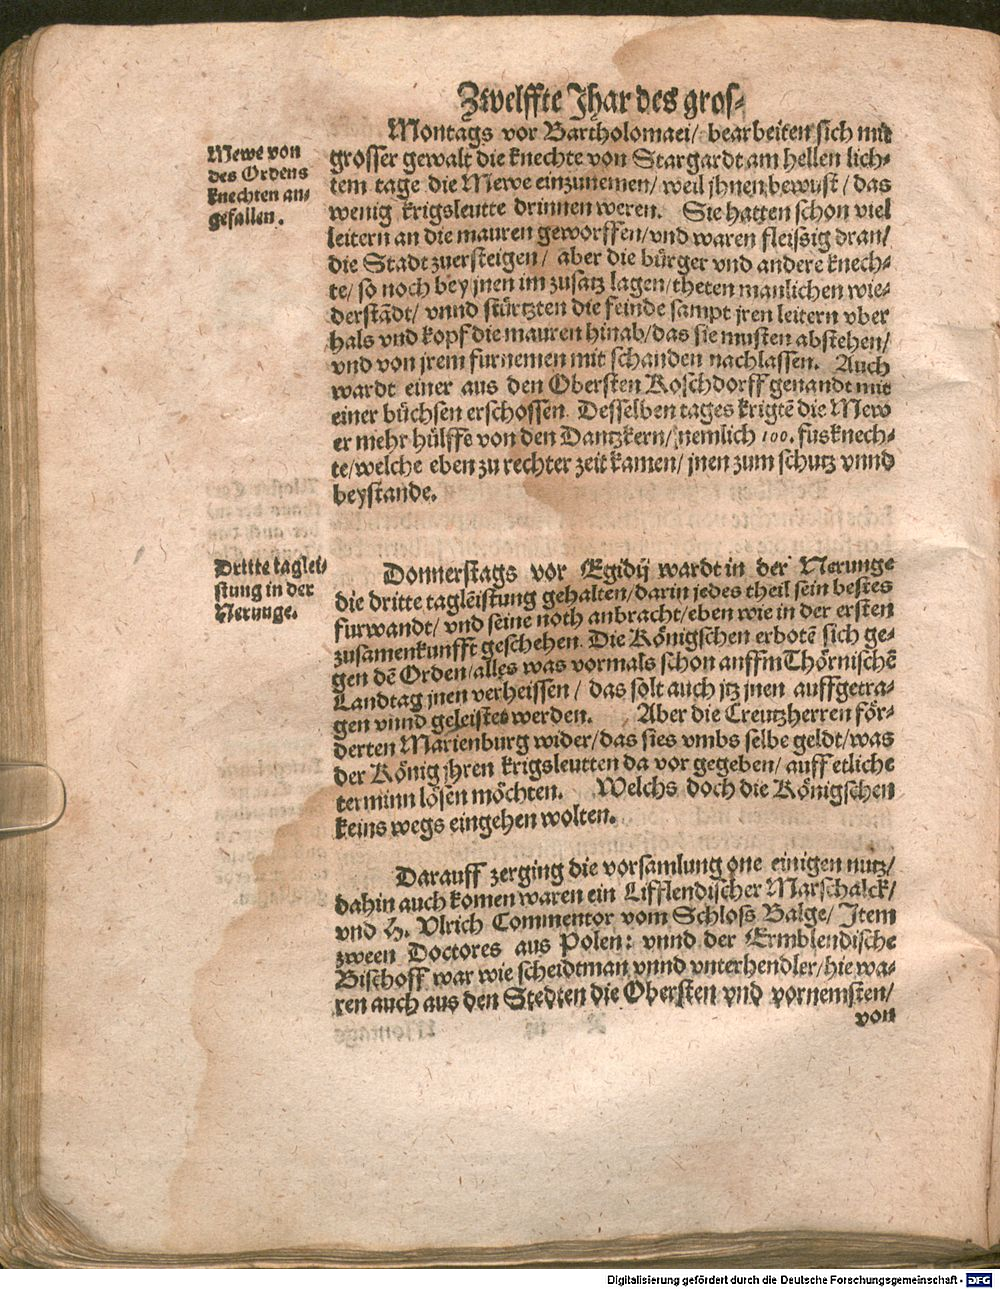 Zwelffte Jhar des gros-
Montags vor Bartholomaei/ bearbeiten sich mit
grosser gewalt die knechte von Stargardt am hellen lich-
tem tage die Mewe einzunemen/ weil jhnen bewust/ das
wenig krigsleutte drinnen weren. Sie hatten schon viel
leitern an die mauren geworffen/ vnd waren fleissig dran/
die Stadt zuersteigen/ aber die bürger vnd andere knech-
te/ so noch bey jnen im zusatz lagen/ theten manlichen wie-
derstādt/ vnnd stürtzten die feinde sampt jren leitern vber
hals vnd kopf die mauren hinab/ das sie musten abstehen/
vnd von jrem furnemen mit schanden nachlassen. Auch
wardt einer aus den Obersten Koschdorff genandt mit
einer büchsen erschossen. Desselben tages krigtē die Mew
er mehr hülffe von den Dantzkern/ nemlich 100. fusknech-
te/ welche eben zu rechter zeit kamen/ jnen zum schutz vnnd
beystande.
Mewe von
des Ordens
knechten an-
gefallen.
Donnerstags vor Egidij wardt in der Nerunge
die dritte tagleistung gehalten/ darin jedes theil sein bestes
furwandt/ vnd seine noth anbracht/ eben wie in der ersten
zusamenkunfft geschehen. Die Königschen erbotē sich ge-
gen dē Orden/ alles was vormals schon auffm Thörnischē
Landtag jnen verheissen/ das solt auch jtz jnen auffgetra-
gen vnnd geleistet werden. Aber die Creutzherren för-
derten Marienburg wider/ das sies vmbs selbe geldt/ was
der König jhren krigsleutten da vor gegeben/ auff etliche
terminn lösen möchten. Welchs doch die Königschen
keins wegs eingehen wolten.
Dritte taglei-
stung in der
Nerunge.
Darauff zerging die vorsamlung one einigen nutz/
dahin auch komen waren ein Lifflendischer Marschalck/
vnd H. Vlrich Commentor vom Schloss Balge/ Item
zween Doctores aus Polen: vnnd der Ermblendische
Bischoff war wie scheidtman vnnd vnterhendler/ hie wa-
ren auch aus den Stedten die Obersten vnd vornemsten/
von
Digitalisierung gefördert durch die Deutsche Forschungsgemeinschaft - DFG